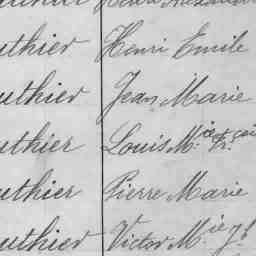 uthier Henri Emile
uthier Jean Marie
uthier Louis M.ie Fr.
uthier Pierre Marie
uthier Victor M.ie